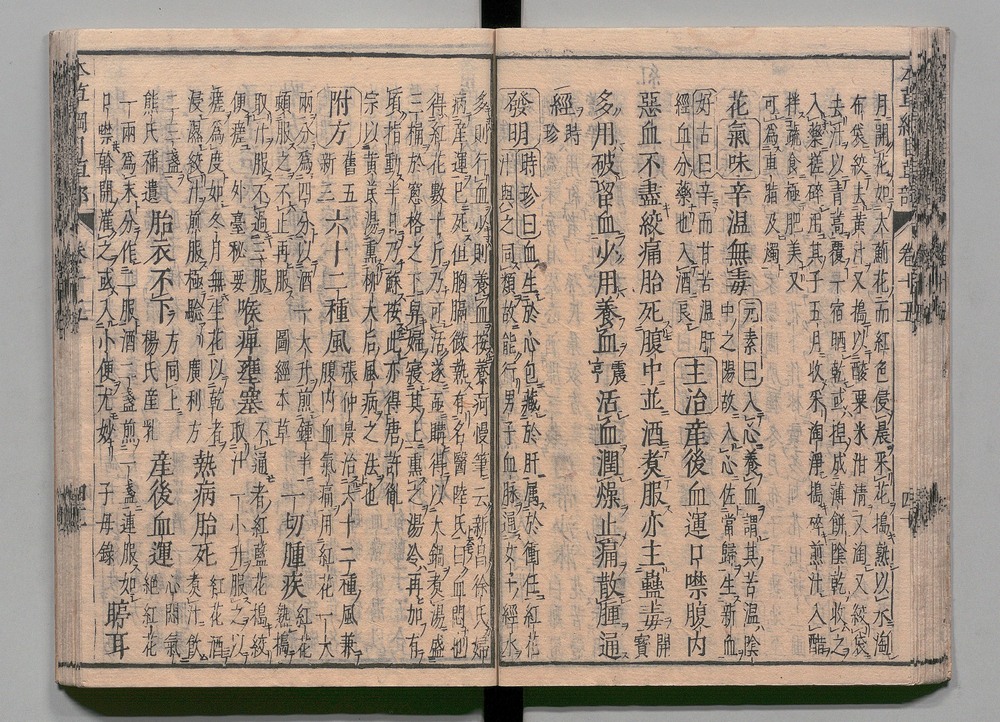 月開花如大薊花而紅色侵晨采花搗熟以水淘
布袋絞去黃汁又搗以酸粟米泔清又淘又絞袋
去汁以青蒿覆一宿晒乾或捏成薄餅陰乾收之
入藥搓碎用其子五月收采淘淨搗碎煎汁入醋
拌蔬食極肥美又
可為車脂及燭
花氣味辛溫無毒元素曰入心養血謂其苦溫陰
中之陽故入心佐當歸生新血
好古曰辛而甘苦溫肝
經血分藥也入酒良主治產後血運口噤腹內
惡血不盡絞痛胎死腹中並酒煮服亦主蠱毒開寶
多用破留血少用養血震亨活血潤燥止痛散腫通
經時珍
發明時珍曰血生於心包藏於肝屬於衝任紅花
汁與之同類故能行男子血脈通女子經水
多則行血少則養血按養疴慢筆云新昌徐氏婦
病產運已死但胸膈微熱有名醫陸氏曰血悶也
得紅花數十斤乃可活遂亟購得以大鍋煮湯盛
三桶於窗格之下舁婦寢其上熏之湯冷再加有
頃指動半日乃蘇按此亦得唐許胤
宗以黃芪湯熏柳太后風病之法也
附方舊五新三六十二種風張仲景治六十二種風兼
腹內血氣痛用紅花一大
兩分為四分以酒一大升煎鍾半
頓服之不止再服圖經本草一切腫疾紅花熟搗
取汁服不過三服
外臺秘要喉痺壅塞不通者紅藍花搗絞
取汁一小升服之以
便瘥
瘥為度如冬月無生花以乾者
浸濕絞汁煎服極驗廣利方熱病胎死紅花酒
煮汁飲
二三盞
熊氏補遺胎衣不下方同上
楊氏產乳產後血運心悶氣
絕紅花
一兩為末分作二服酒二盞煎一盞連服如
口噤斡開灌之或入小便尤妙子母錄聤耳